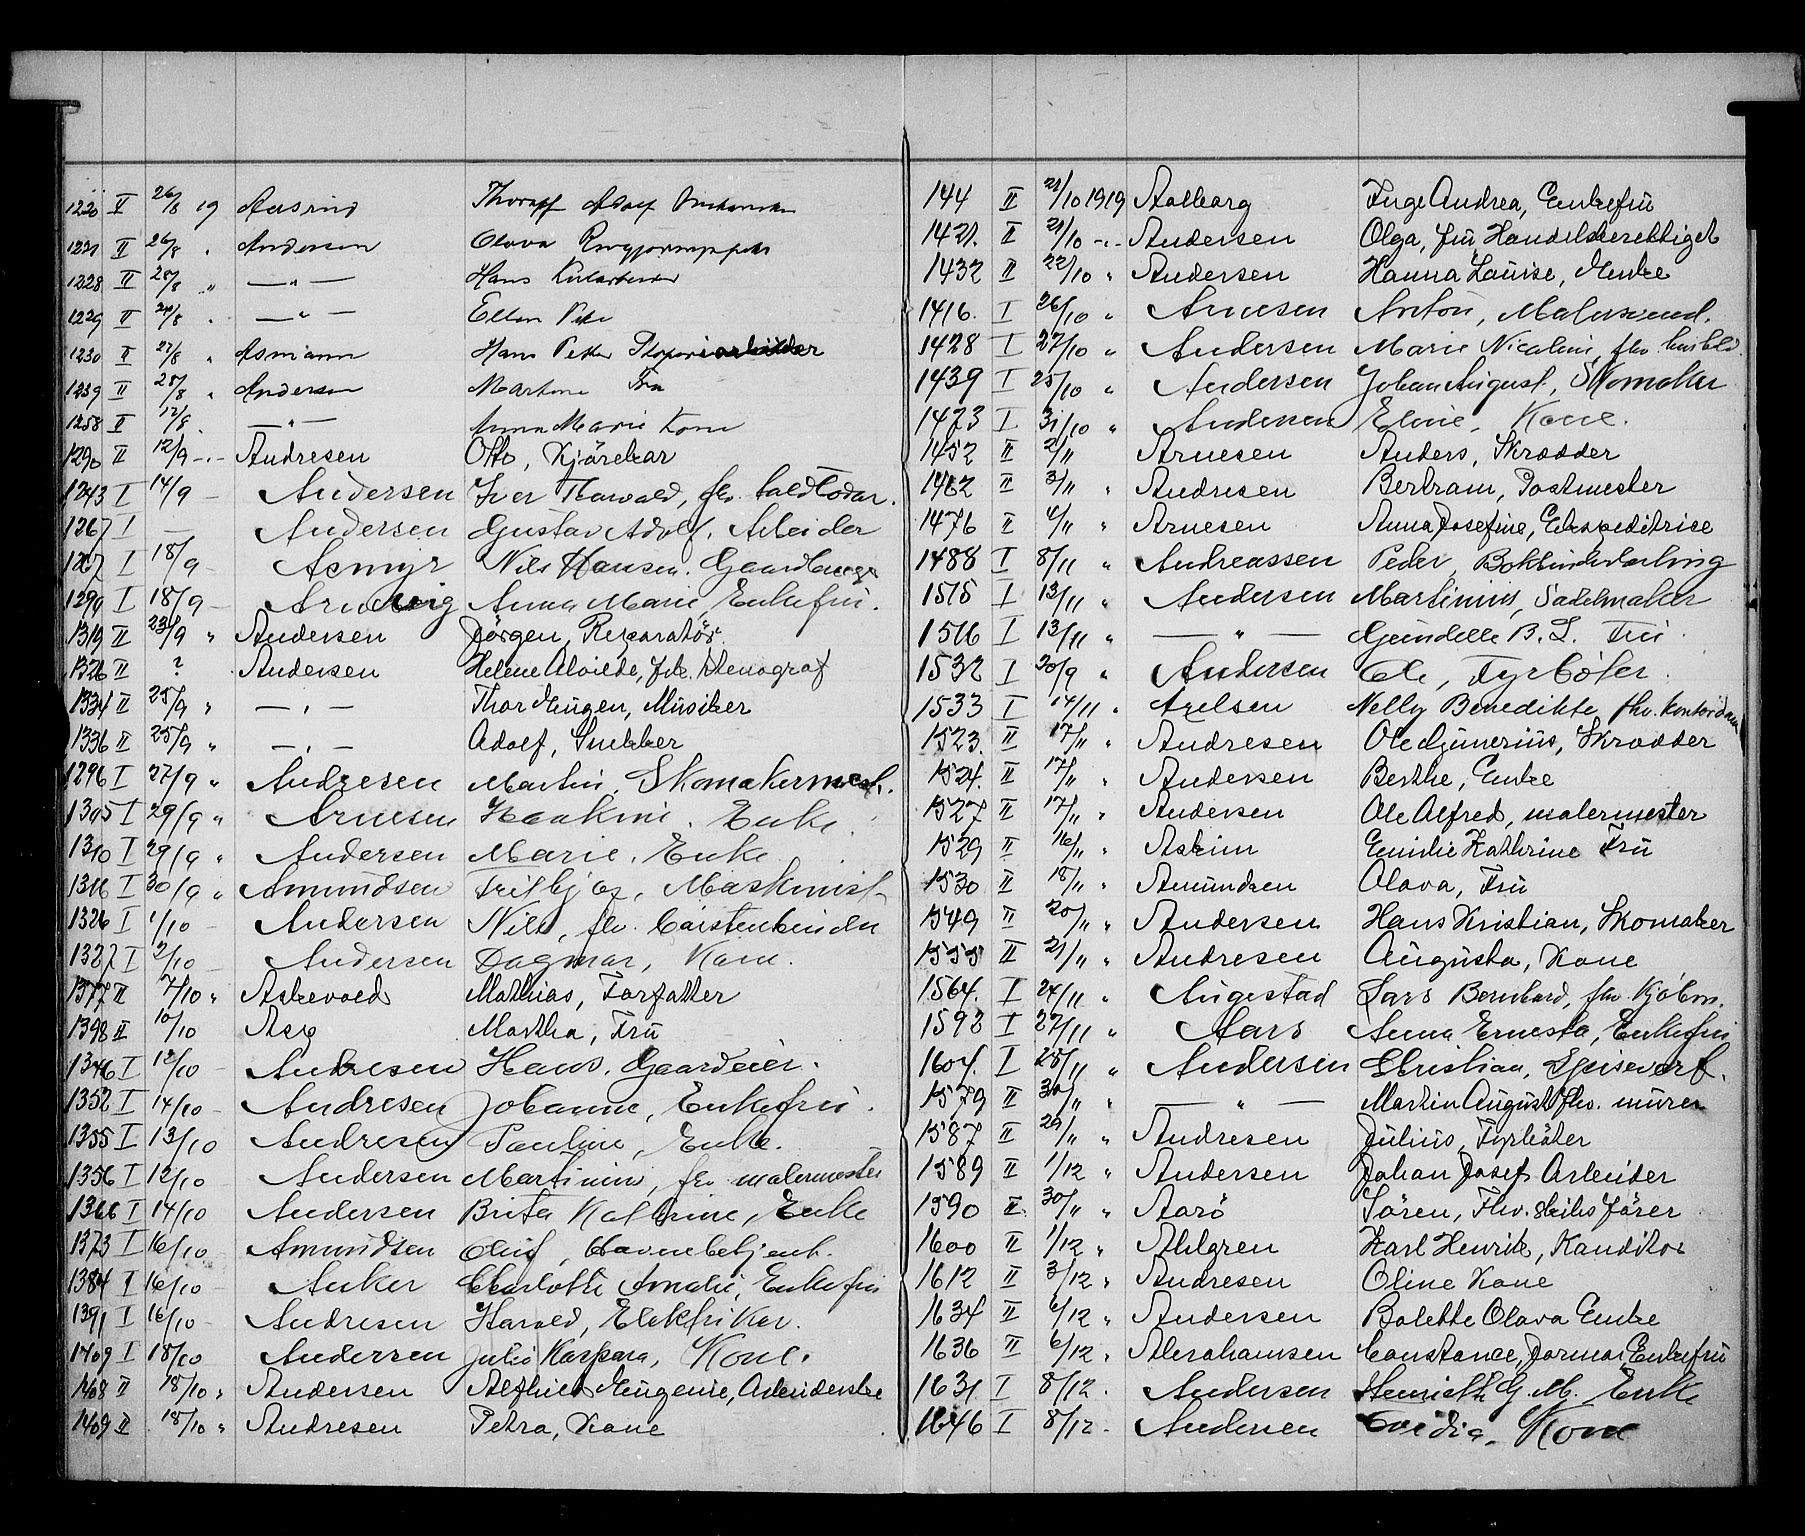 1220 II 26/8 19 Aasrud Thoralf Adolf
1221 II 26/8 " Andersen Olava
1228 II 28/8 " —"— Hans
1229 II 24/8 " —"— Ellen
1230 II 27/8 " Asmann Hans Petter
1239 II 28/8 " Andersen Martine Fru
1258 II 12/8 " —"— Anna Marie Kone
1290 II 12/9 -"- Andresen Otto, Kjörekar
1243 I 14/9 - Andersen Iver Thorvald, fhv.
1267 I — Andersen Gustav Adolf. Arbeider
I 18/9 - Asmyr Nils Hansen.
1299 I 18/9 - Anna Marie Enkefru.
1319 II 23/9 " Andersen Jörgen, Reparatör
1326 II ? Andersen Helene Alvilde, frk. Stenograf
1334 II 25/9 " —"— Thor Mügen, Musiker
1336 II 25/9 " —"— Adolf, Snekker
1296 I 27/9 " Andresen Martin, Skomakermest.
1305 I 29/9 " Arnesen Haakine. Enke.
1310 I 29/9 " Andersen Marie. Enke
1316 I 30/9 " Amundsen Fritbjof, Maskinist
1326 I 1/10 - Andersen Nils, fhv. börstenbinder
1327 I 2/10 - Andersen Dagmar, Kone.
1377 II 7/10 " Askevold Mathias, Forfatter
1398 II 10/10 Ask Martha, Fru
1346 I 12/10 - Andresen Hans. Gaardeier.
1352 I 14/10 - Andresen Johanne, Enkefru.
1355 I 13/10 Andresen Pauline, Enke.
1356 I 12/10 Andersen Martinius, fhv malermester
1366 I 14/10 Andersen Brita Kathrine, Enke
1373 I 16/10 - Amundsen Oluf, Havnebetjent.
1384 I 16/10 - Anker Charlotte Amalie, Enkefru
1391 I 16/10 - Andresen Harald, Elektriker.
1409 I 18/10 Andersen Julie Kaspara, Kone.
1408 II 18/10 " Andersen Alfhild Eugenie, Arbeiderske
1409 II 18/10 " Andresen Petra, Kone
144 II 21/10 1919 Aalborg Inge Andrea, Enkefru
1421. II 21/10 -"- Andersen Olga, fru, Handelsberettiget
1432 II 22/10 " Andersen Hanna Louise, Enke
1416. I 26/10 " Arnesen Anton, Malersvend.
1428 I 27/10 " Andersen Marie Nicoline, fhv. husbld.
1439 I 25/10 " Andersen Johan August, Skomaker
1473 I 31/10 " Andersen Eline, Kone.
1452 II 2/11 Arnesen Anders, Skrædder
1462 II 3/11 " Andresen Bertram, Postmester
1476 II 4/11 " Arnesen Anna Josefine, Ekspeditrise
1488 I 8/11 " Andreassen Peder, Bokbinderlærling
1515 I 13/11 " Andersen Martinius, Sadelmaker
1516 I 13/11 " —"— Gjendelle B. L. Fru.
1532 I 20/9 " Andersen Ole, Fyrböter.
1533 I 14/11 " Axelsen Nelly Benedikte, fhv. Kontordame
1523. II 17/11 " Andresen Ole Gunerius, Skrædder
1524. II 17/11 " Andersen Berthe, Enke
1527 II 17/11 " Andersen Ole Alfred, malermester
1529 II 16/11 " Askim Emilie Kathrine Fru
1530 II 18/11 " Amundsen Olava, Fru
1549 II 20/11 " Andersen Hans Kristian, Skomaker
1555 II 21/11 " Andresen Augusta, Kone
1564. I 24/11 " Augestad Lars Bernhard, fhv. Kjöbm.
1593 I 27/11 " Aars Anna Ernesta, Enkefru
1604. I 28/11 " Andersen Christian, Spisevert.
1579 II 30/11 " —"— Martin August fhv. murer
1587 II 29/11 " Andresen Julius, Fyrböter
1589 II 1/12 " Andersen Johan Josef Arbeider
1590 II 30/11 " Aarö Sören, Fhv. Skibsförer
1600 II 1/12 " Ahlgren Karl Henrik, Kanditor
1612 II 3/12 " Andresen Oline Kone
1634 II 6/12 " Andersen Bolette Olava Enke
1636 II 6/12 " Abrahamsen Constance, Jormar, Enkefru
1631 I 8/12. Andersen Henriette G. M. Enke
1646 I 8/12. Andersen Kone